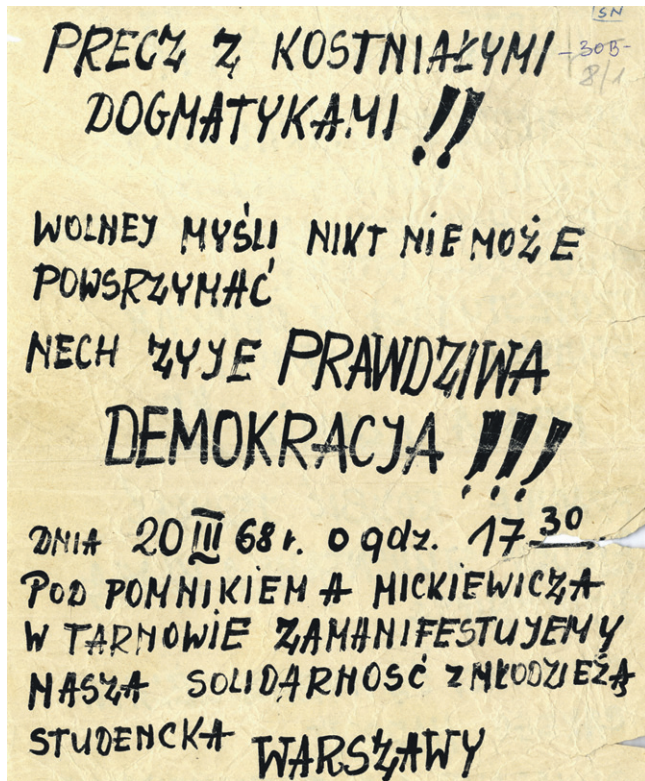 SN
PRECZ Z KOSTNIAŁYMI
-30B-
8/1
DOGMATYKAMI !!
WOLNEJ MYŚLI NIKT NIE MOŻE
POWSRZYMAĆ
NECH ŻYJE PRAWDZIWA
DEMOKRACJA !!!
DNIA 20 III 68 r. o gdz. 17.30
POD POMNIKIEM A MICKIEWICZA
W TARNOWIE ZAMANIFESTUJEMY
NASZA SOLIDARNOSĆ Z MŁODZIEŻĄ
STUDENCKA WARSZAWY